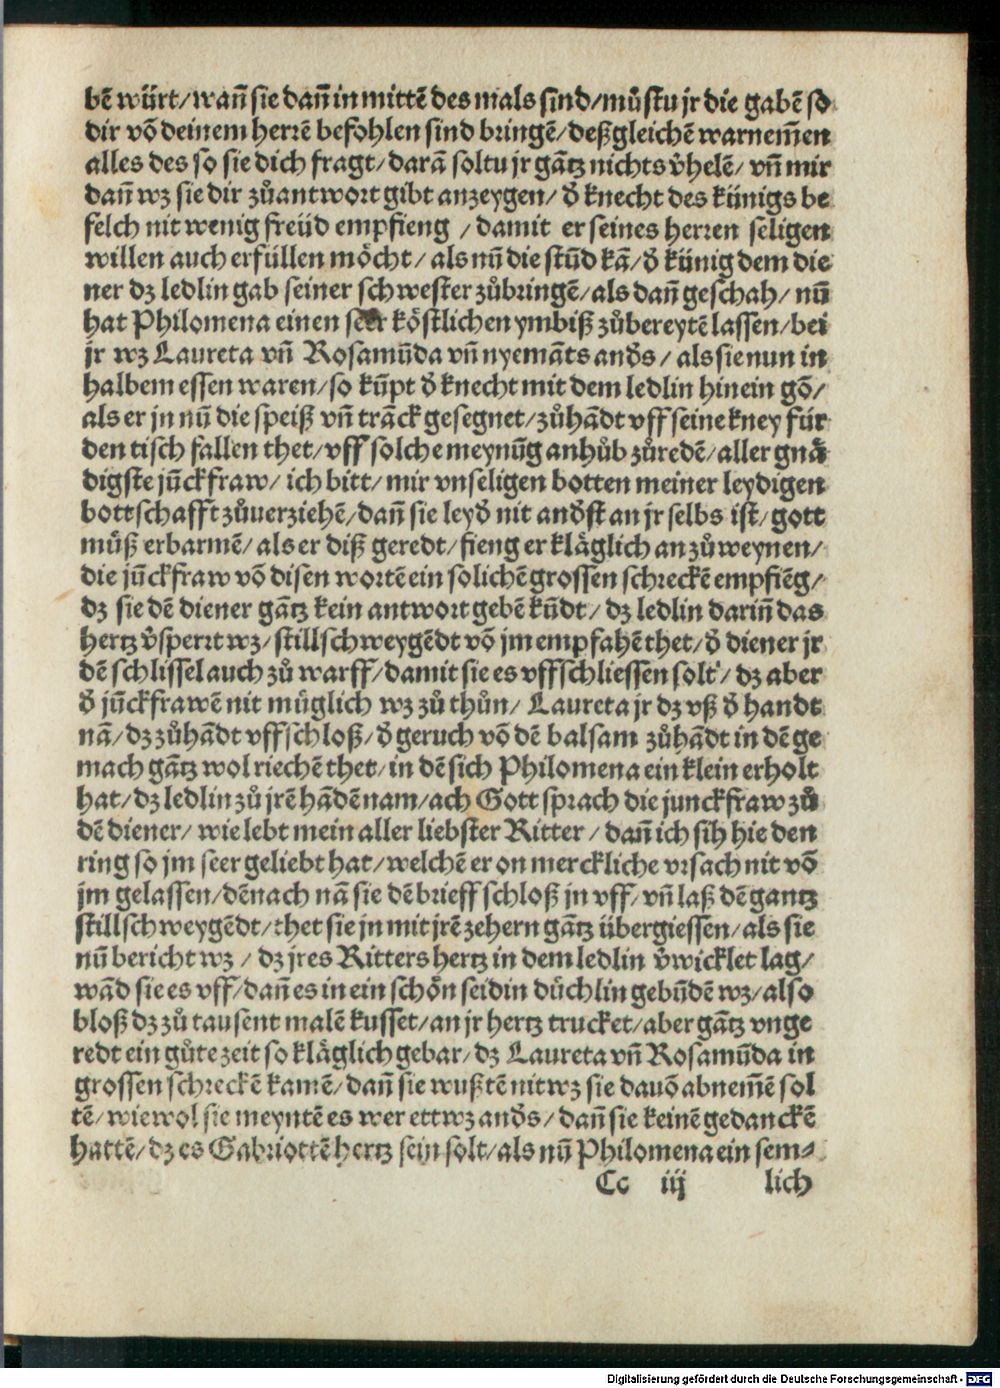 bẽ würt/wañ sie dañ in mittẽ des mals sind/můstu jr die gabẽ so
dir võ deinem herrẽ befohlen sind bringẽ/deßgleichẽ warnem̃en
alles des so sie dich fragt/darã soltu jr gãtz nichts v̉helẽ/ vñ mir
dañ wz sie dir zůantwort gibt anzeygen/ d̉ knecht des künigs be
felch nit wenig freüd empfieng / damit er seines herren seligen
willen auch erfüllen möcht/ als nũ die stũd kã/ d̉ künig dem die
ner dz ledlin gab seiner schwester zůbringẽ/als dañ geschah/ nũ
hat Philomena einen seer köstlichen ymbiß zůbereytẽ lassen/bei
jr wz Laureta vñ Rosamũda vñ nyemãts and̉s/ als sie nun in
halbem essen waren/so kũpt d̉ knecht mit dem ledlin hinein gõ/
als er jn nũ die speiß vñ trãck gesegnet/zůhãdt vff seine kney für
den tisch fallen thet/vff solche meynũg anhůb zůredẽ/aller gnå
digste jũckfraw/ ich bitt/ mir vnseligen botten meiner leydigen
bottschafft zůuerziehẽ/dañ sie leyd̉ nit and̉st an jr selbs ist/gott
můß erbarmẽ/als er diß geredt/fieng er kläglich an zůweynen/
die jũckfraw võ disen wortẽ ein solichẽ grossen schreckẽ empfiẽg/
dz sie dẽ diener gãtz kein antwort gebẽ kũdt/ dz ledlin dariñ das
hertz v̉sperrt wz/stillschweygẽdt võ jm empfahẽ thet/d̉ diener jr
dẽ schlissel auch zů warff/damit sie es vffschliessen solt/ dz aber
d̉ jũckfrawẽ nit müglich wz zů thůn/ Laureta jr dz vß d̉ handt
nã/dz zůhãdt vffschloß/d̉ geruch võ dẽ balsam zůhãdt in dẽ ge
mach gãtz wol riechẽ thet/in dẽ sich Philomena ein klein erholt
hat/dz ledlin zů jrẽ hãdẽ nam/ach Gott sprach die junckfraw zů
dẽ diener/ wie lebt mein aller liebster Ritter/ dañ ich sih hie den
ring so jm seer geliebt hat/welchẽ er on merckliche vrsach nit võ
jm gelassen/dẽnach nã sie dẽ brieff schloß jn vff/ vñ laß dẽ gantz
stillschweygẽdt/thet sie jn mit jrẽ zehern gãtz übergiessen/als sie
nũ bericht wz/ dz jres Ritters hertz in dem ledlin v̉wicklet lag/
wãd sie es vff/dañ es in ein schön seidin düchlin gebũdẽ wz/also
bloß dz zů tausent malẽ kusset/an jr hertz trucket/aber gãtz vnge
redt ein gůte zeit so kläglich gebar/dz Laureta vñ Rosamũda in
grossen schreckẽ kamẽ/dañ sie wußtẽ nit wz sie dauõ abnem̃ẽ sol
tẽ/wiewol sie meyntẽ es wer ettwz and̉s/ dañ sie keinẽ gedanckẽ
hattẽ/dz es Gabriottẽ hertz sein solt/als nũ Philomena ein sem⸗
Cc iij lich
Digitalisierung gefördert durch die Deutsche Forschungsgemeinschaft - DFG